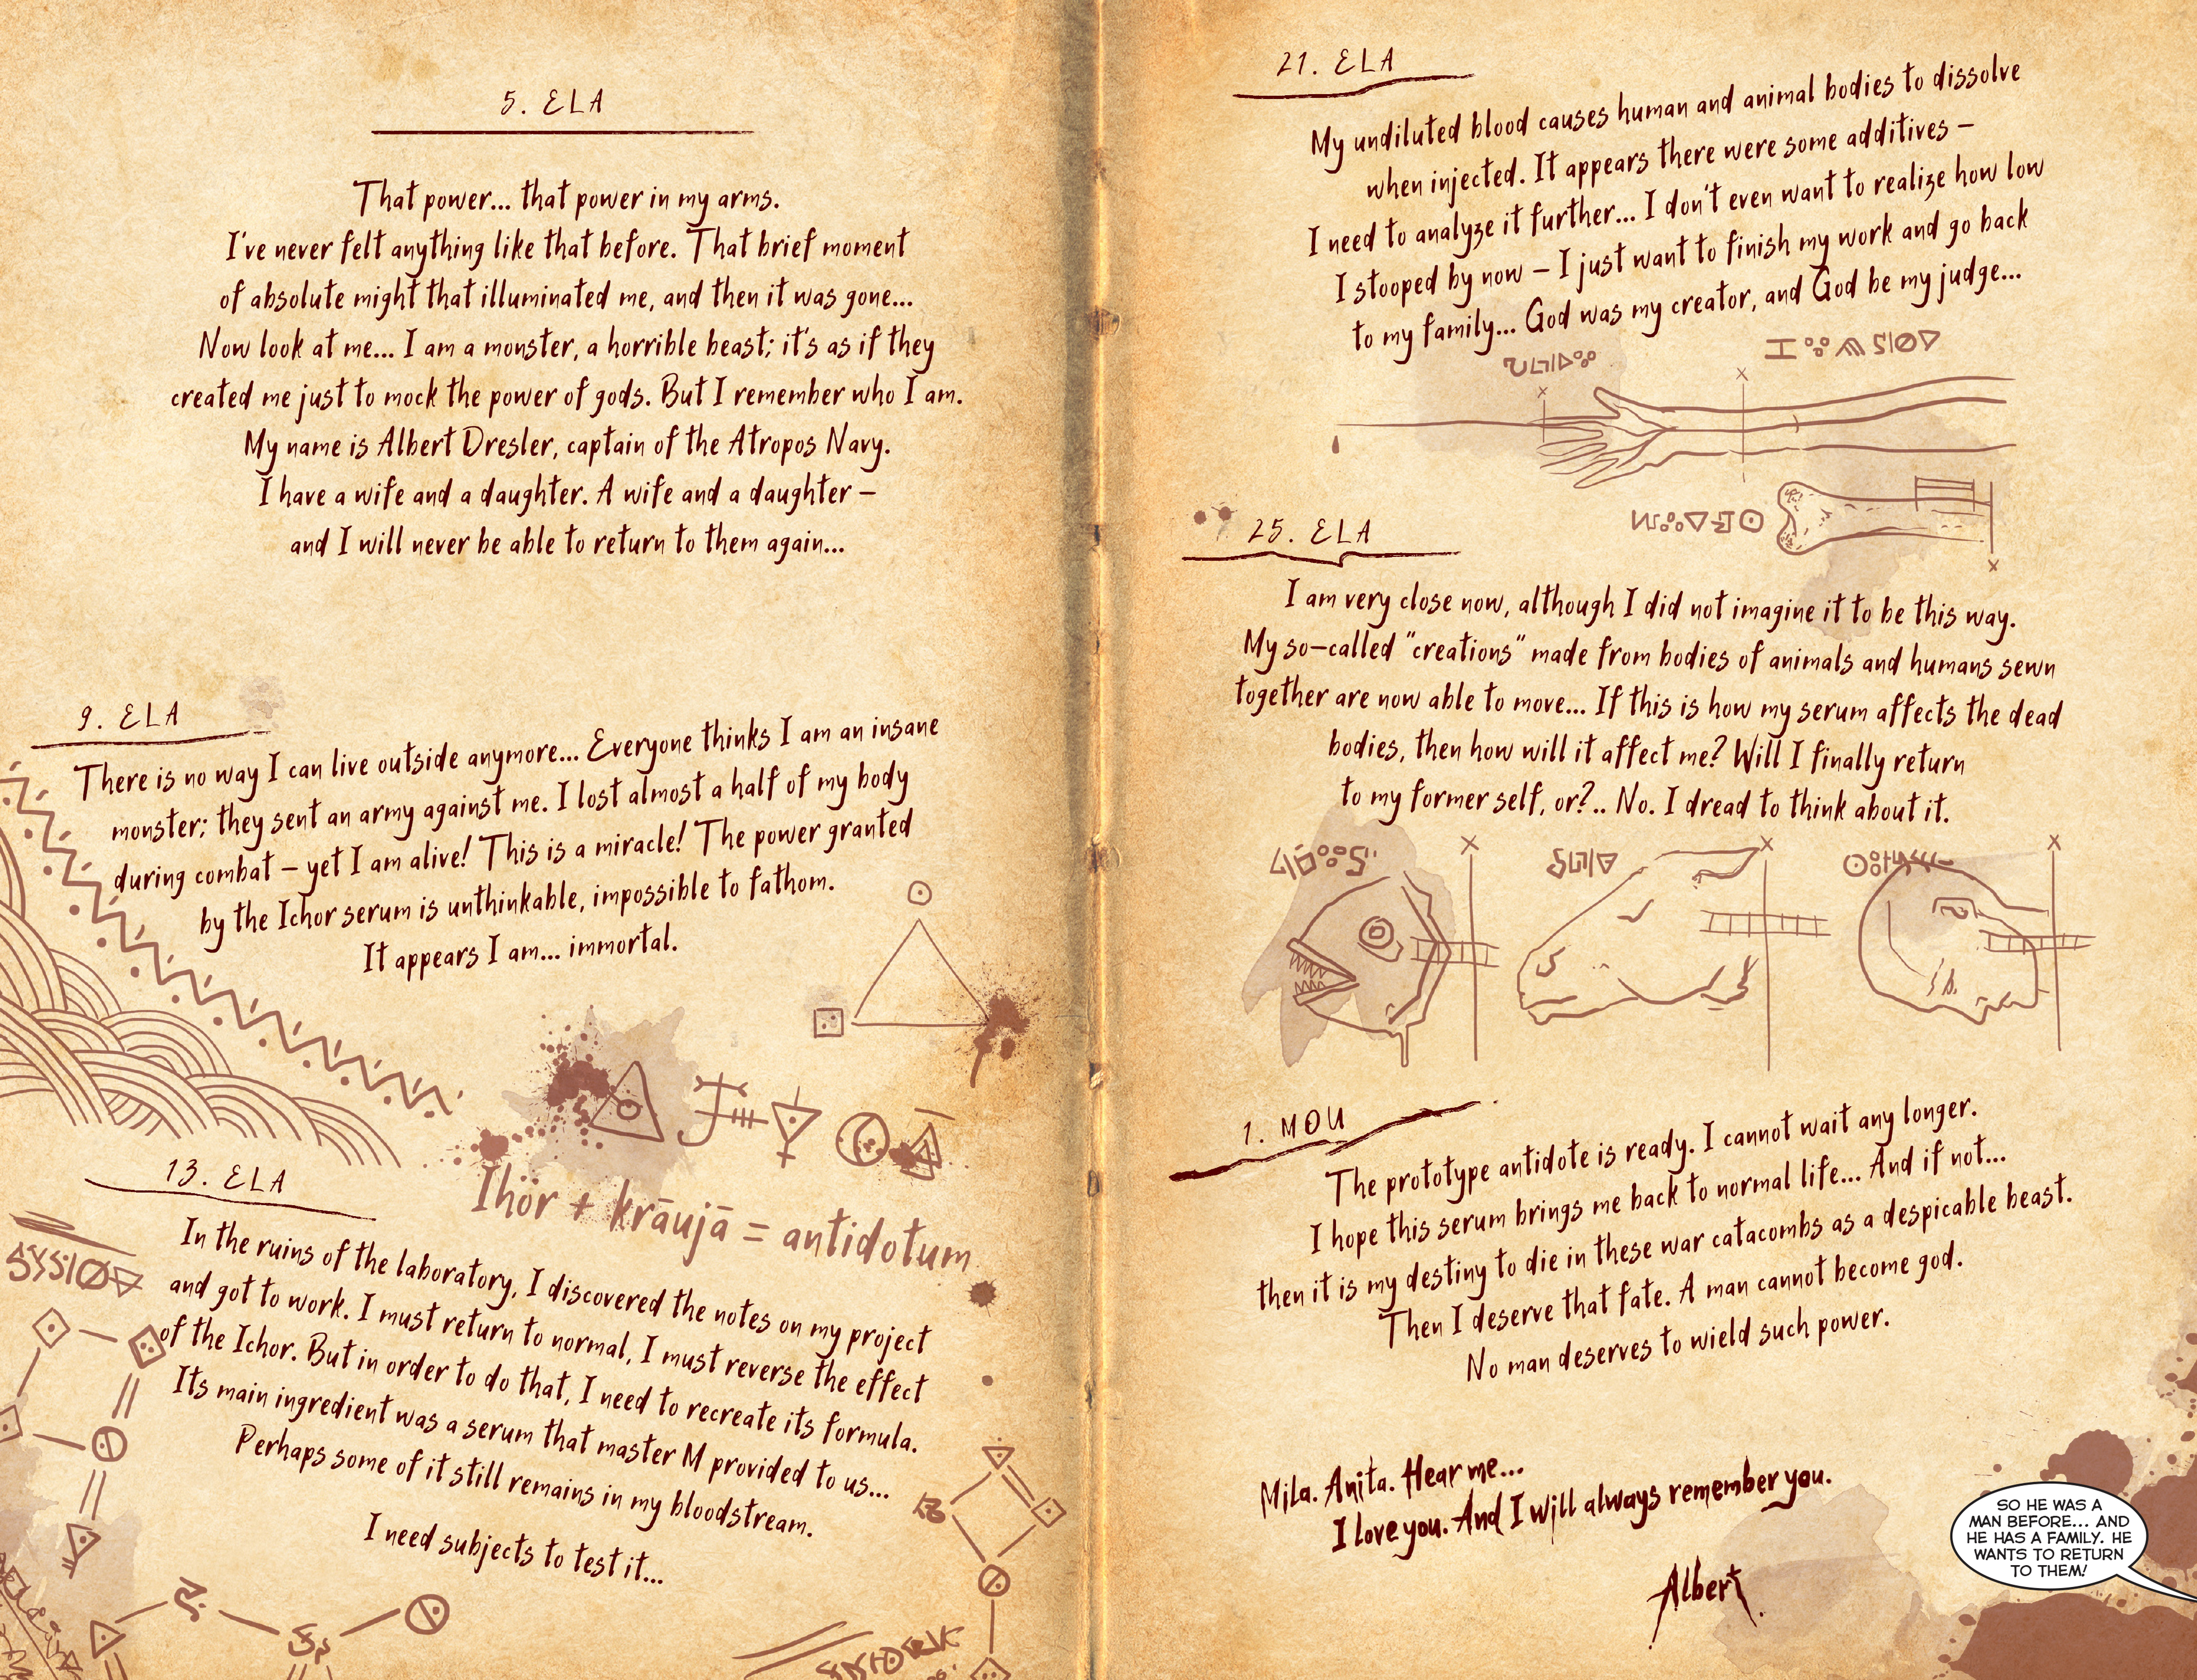 5. ELA
That power... that power in my arms.
I've never felt anything like that before. That brief moment
of absolute might that illuminated me, and then it was gone...
Now look at me... I am a monster, a horrible beast; it's as if they
created me just to mock the power of gods. But I remember who I am.
My name is Albert Dresler, captain of the Atropos Navy.
I have a wife and a daughter. A wife and a daughter –
and I will never be able to return to them again...
9. ELA
There is no way I can live outside anymore... Everyone thinks I am an insane
monster; they sent an army against me. I lost almost a half of my body
during combat – yet I am alive! This is a miracle! The power granted
by the Ichor serum is unthinkable, impossible to fathom.
It appears I am... immortal.
Ihör + krāujā = antidotum
13. ELA
In the ruins of the laboratory, I discovered the notes on my project
and got to work. I must return to normal, I must reverse the effect
of the Ichor. But in order to do that, I need to recreate its formula.
Its main ingredient was a serum that master M provided to us...
Perhaps some of it still remains in my bloodstream.
I need subjects to test it...
21. ELA
My undiluted blood causes human and animal bodies to dissolve
when injected. It appears there were some additives –
I need to analyze it further... I don't even want to realize how low
I stooped by now – I just want to finish my work and go back
to my family... God was my creator, and God be my judge...
25. ELA
I am very close now, although I did not imagine it to be this way.
My so-called "creations" made from bodies of animals and humans sewn
together are now able to move... If this is how my serum affects the dead
bodies, then how will it affect me? Will I finally return
to my former self, or?.. No. I dread to think about it.
1. MOU
The prototype antidote is ready. I cannot wait any longer.
I hope this serum brings me back to normal life... And if not...
then it is my destiny to die in these war catacombs as a despicable beast.
Then I deserve that fate. A man cannot become god.
No man deserves to wield such power.
Mila. Anita. Hear me...
I love you. And I will always remember you.
Albert
SO HE WAS A
MAN BEFORE... AND
HE HAS A FAMILY. HE
WANTS TO RETURN
TO THEM!